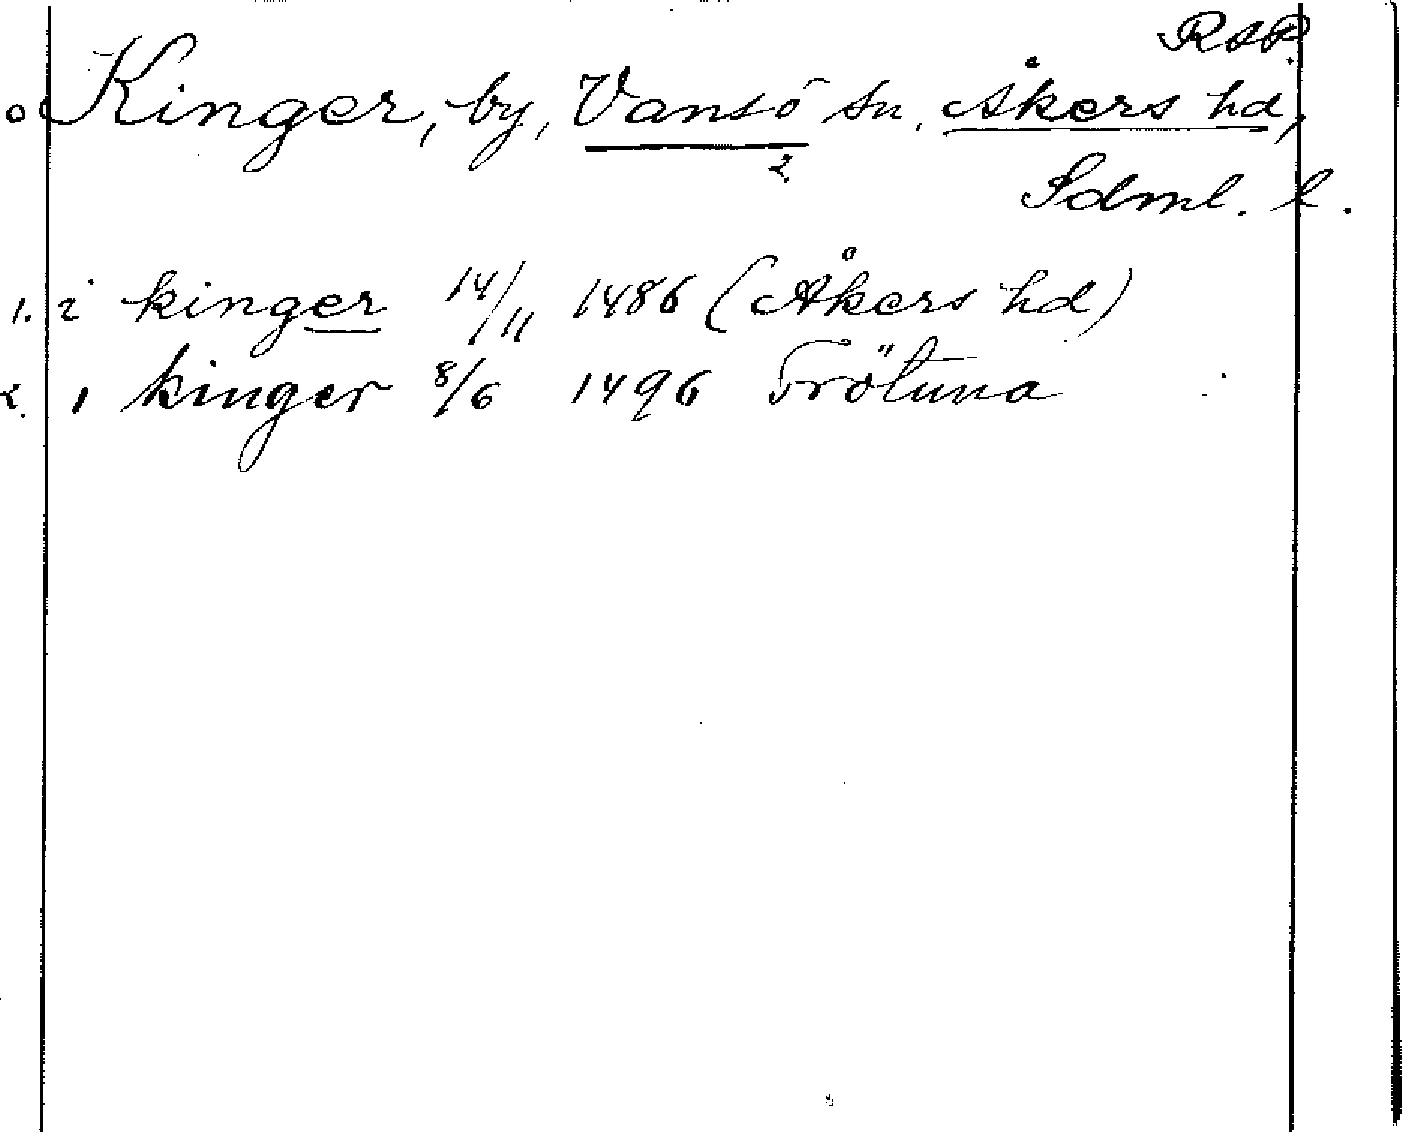 RAP.
o Kinger, by, Vansö sn. Åkers hd,
2.
Sdml. l.
1. i kinger 14/11 1486 (Åkers hd)
2. i kinger 8/6 1496 Frötuna